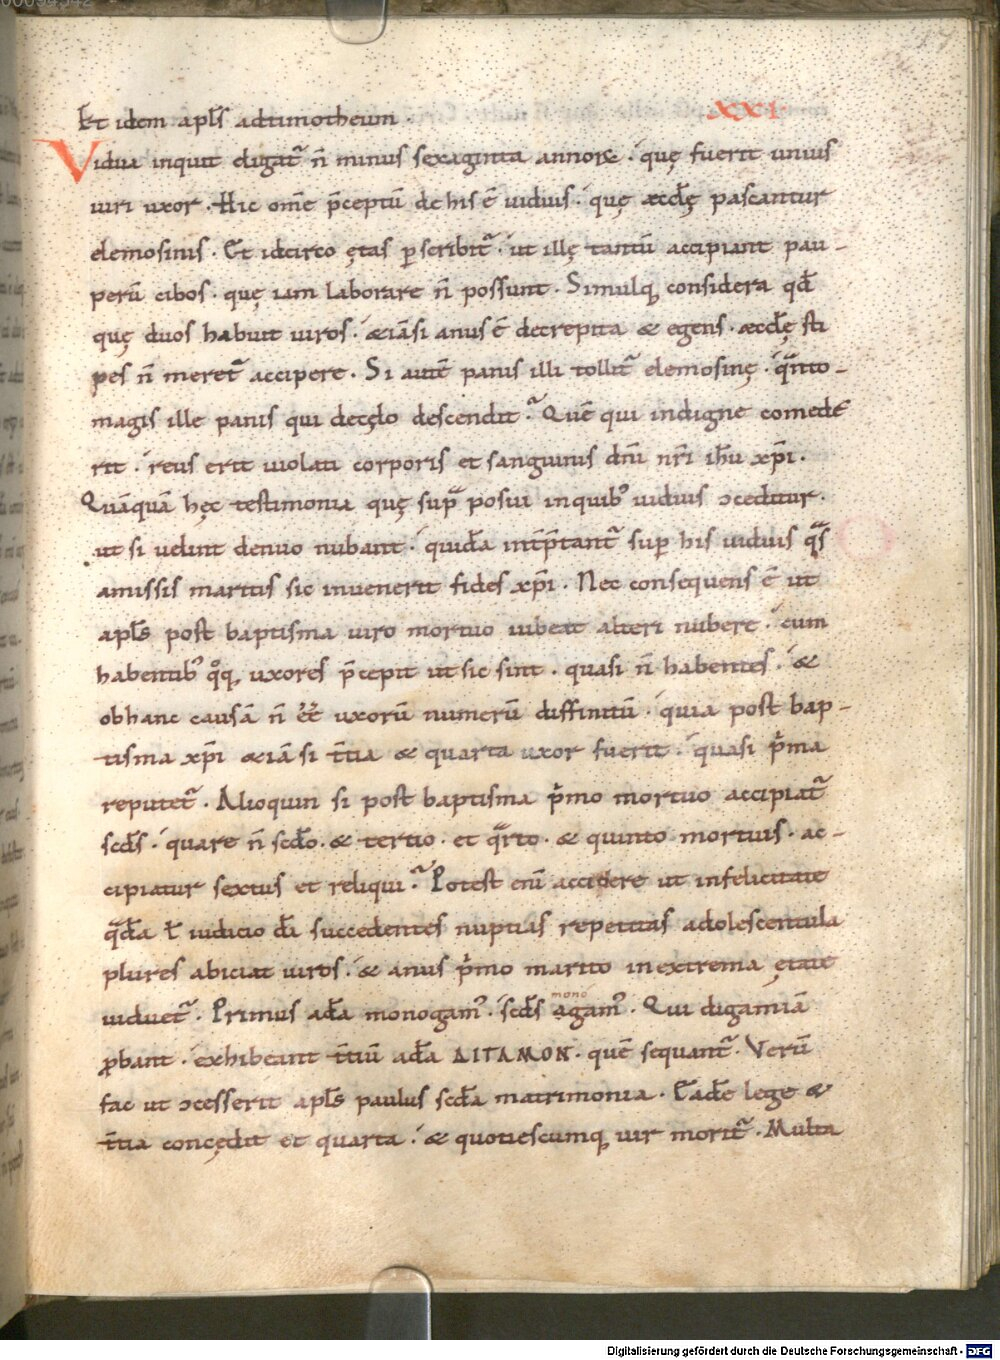 Et idem apl̅s adtimotheum . XXI
Vidua inquit eligat᷑ n̅ minus sexaginta annoꝝ . quę fuerit unius
uiri uxor . Hic om̅e p̅ceptu̅ de his e̅ uiduis . quę æccl̅ę pascantur
elemosinis . Et idcirco ętas p̲scribit᷑ . ut illę tantu̅ accipiant pau-
peru̅ cibos . quę iam laborare n̅ possunt . Simulq; considera qd̅
quę duos habuit uiros . &ia̅si anus e̅ decrepita & egens . æccl̅ę sti
pes n̅ meret᷑ accipere . Si aute̅ panis illi tollit᷑ elemosinę . qͣnto-
magis ille panis qui decęlo descendit . Que̅ qui indigne comede
rit . reus erit uiolati corporis et sanguinis dn̅i nr̅i ih̅u xp̅i .
Qua̅qua̅ hęc testimonia quę supͣ posui inquibꝰ uiduis ɔceditur .
ut si uelint denuo nubant . quida̅ int̅p̅tant᷑ sup̲ his uiduis qͣs
amissis maritis sic inuenerit fides xp̅i . Nec consequens e̅ ut
apl̅s post baptisma uiro mortuo iubeat alteri nubere . cum
habentibꝰ qͦq; uxores p̅cepit ut sic sint . quasi n̅ habentes . &
obhanc causa̅ n̅ e̅e̅ uxoru̅ numeru̅ diffinitu̅ . quia post bap-
tisma xp̅i &ia̅ si t̅tia & quarta uxor fuerit . quasi pͥma
reputet᷑ . Alioquin si post baptisma pͥmo mortuo accipiat᷑
scd̅s . quare n̅ scd̅o . & tertio . et qͣrto . & quinto mortuis . ac-
cipiatur sextus et reliqui . Potest eni̅ accidere ut infelicitate
qͣda̅ ł iudicio d̅i succedentes nuptias repetitas adolescentula
plures abiciat uiros . & anus pͥmo marito inextrema ętate
uiduet᷑ . Primus ada̅ monogamꝰ . scd̅s agamꝰ . Qui digamia̅
mono
ꝓbant . exhibeant t̅tiu̅ ada̅ ΔΙΓΑΜΟΝ . que̅ sequant᷑ . Veru̅
fac ut ɔcesserit apl̅s paulus scd̅a matrimonia . Eade̅ lege &
t̅tia concędit et quarta . & quotiescumq; uir morit᷑ . Multa
Digitalisierung gefördert durch die Deutsche Forschungsgemeinschaft - DFG